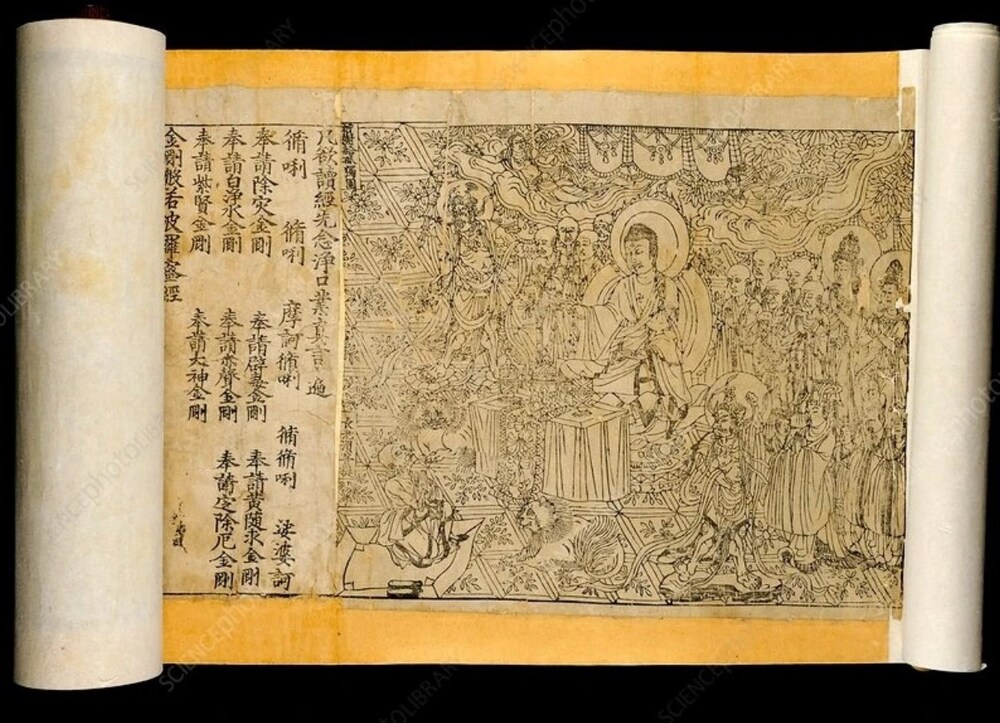 祇樹給孤獨園
凡欲讀經先念淨口業真言一遍
脩唎 脩唎 摩訶脩唎 脩脩唎 娑婆訶
奉請除灾金剛 奉請辟毒金剛 奉請黃随求金剛
奉請白淨水金剛 奉請赤聲金剛 奉請定除厄金剛
奉請紫賢金剛 奉請大神金剛
金剛般若波羅蜜經
SCIENCEphotoLIBRARY